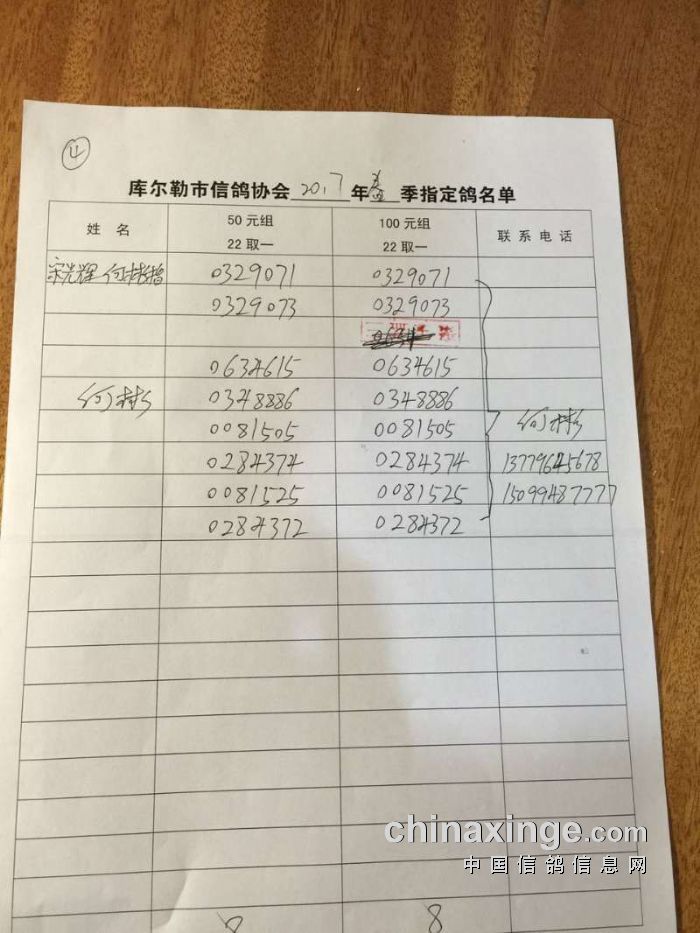 ④
库尔勒市信鸽协会 2017 年 春 季指定鸽名单
姓 名 50元组 22取一 100元组 22取一 联系电话
宋光辉 何彬 0329071 0329071
0329073 0329073
0634615 0634615
何彬 0348886 0348886
0081505 0081505 何彬
0284374 0284374 13779645678
0081525 0081525 15099487777
0284372 0284372
chinaxinge.com
中国信鸽信息网
8 8